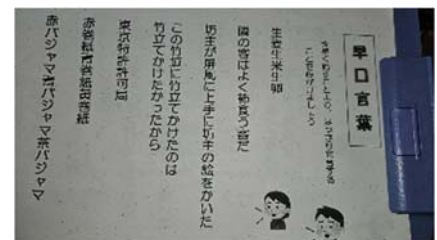 早口言葉
はっきり発音する
ことを心がけましょう
生麦生米生卵
隣の客はよく柿食う客だ
坊主が屏風に上手に坊主の絵をかいた
この竹垣に竹立てかけたのは
竹立てかけたかったから
東京特許許可局
赤巻紙青巻紙黄巻紙
赤パジャマ青パジャマ茶パジャマ